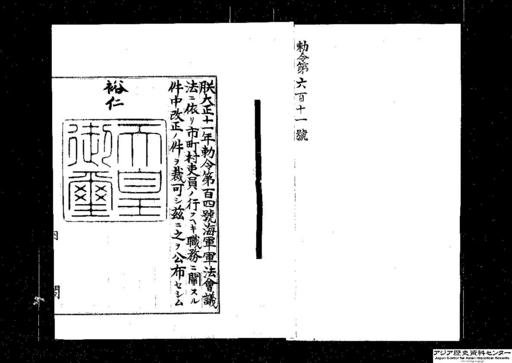 勅令第六百十一號
朕大正十一年勅令第百四號海軍軍法會議
法ニ依リ市町村吏員ノ行フヘキ職務ニ關スル
件中改正ノ件ヲ裁可シ茲ニ之ヲ公布セシム
裕仁
天皇
御璽
内閣
アジア歴史資料センター
Japan Center for Asian Historical Records